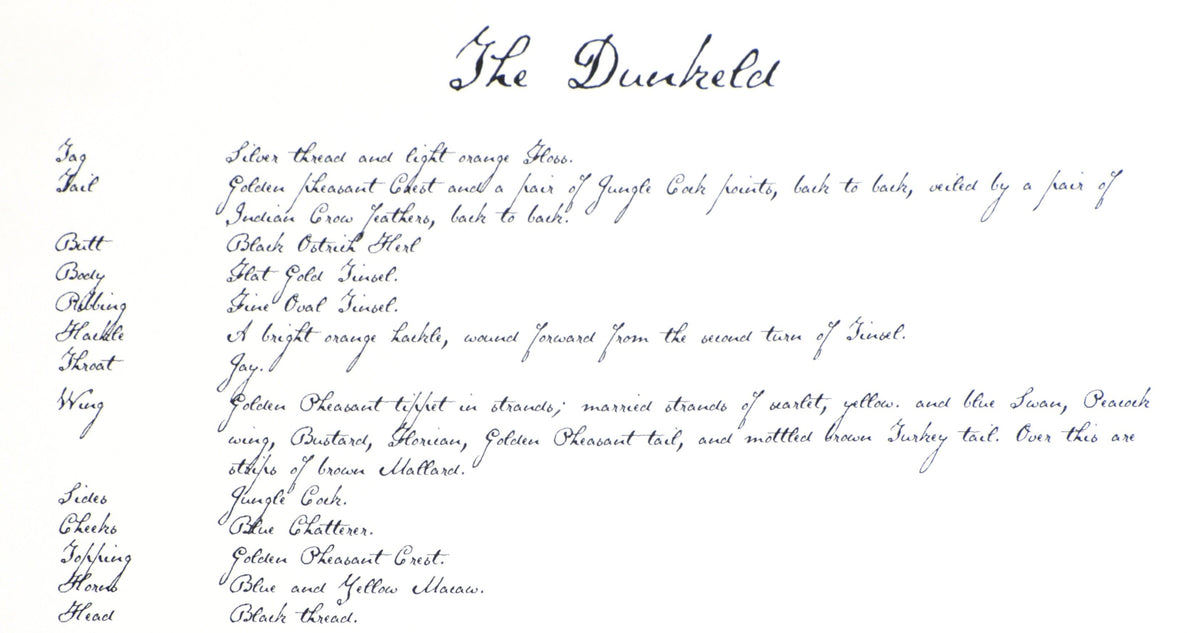 The Dunkeld
Tag Silver thread and light orange Floss.
Tail Golden pheasant Crest and a pair of Jungle Cock points, back to back, veiled by a pair of
Indian Crow feathers, back to back.
Butt Black Ostrich Herl
Body Flat Gold Tinsel.
Ribbing Fine Oval Tinsel.
Hackle A bright orange hackle, wound forward from the second turn of Tinsel.
Throat Jay.
Wing Golden Pheasant tippet in strands; married strands of scarlet, yellow. and blue Swan, Peacock
wing, Bustard, Florican, Golden Pheasant tail, and mottled brown Turkey tail. Over this are
strips of brown Mallard.
Sides Jungle Cock.
Cheeks Blue Chatterer.
Topping Golden Pheasant Crest.
Horns Blue and Yellow Macaw.
Head Black thread.